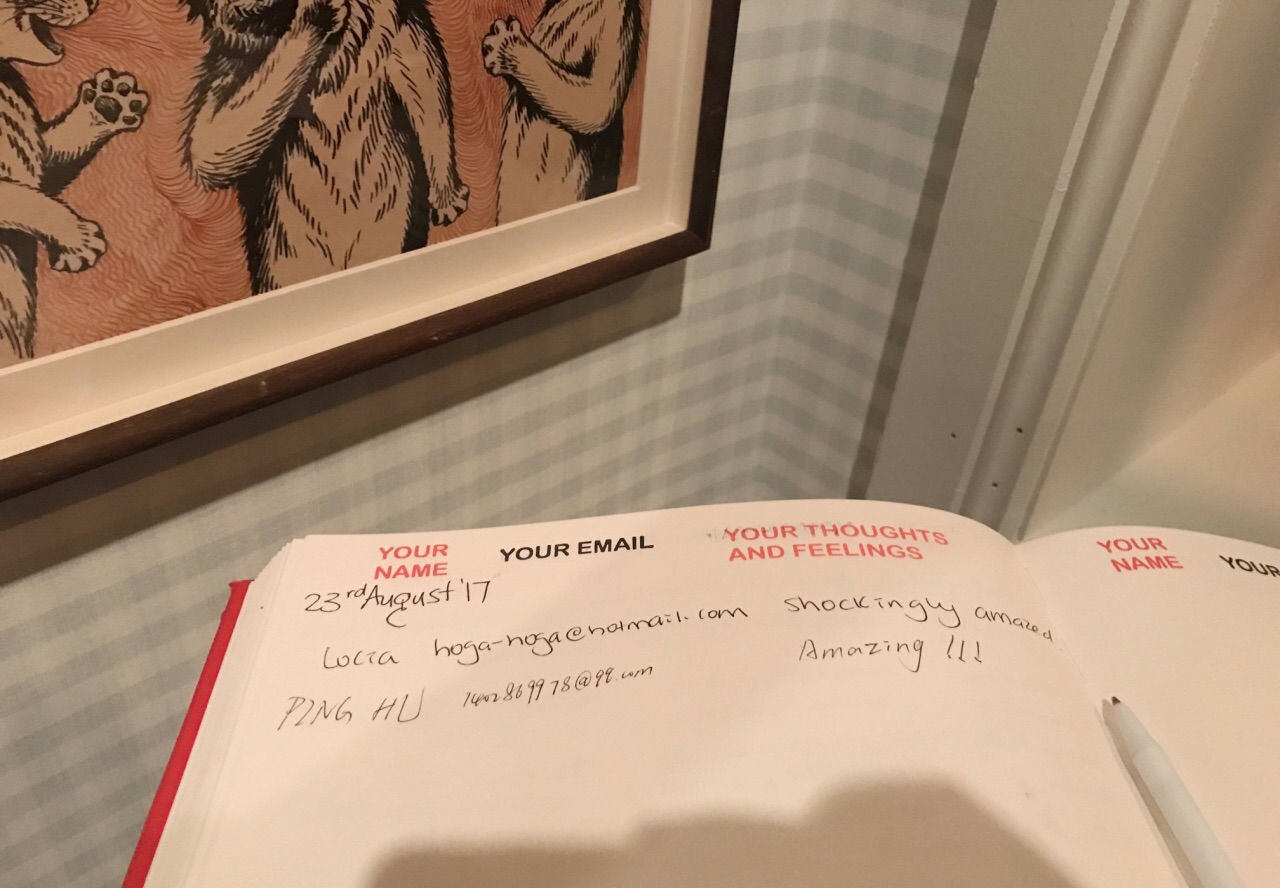 YOUR NAME
YOUR EMAIL
YOUR THOUGHTS AND FEELINGS
23rd August '17
Lucia hoga-hoga@hotmail.com Shockingly amazed
Amazing !!!
PING HU @qq.com
YOUR NAME
YOUR